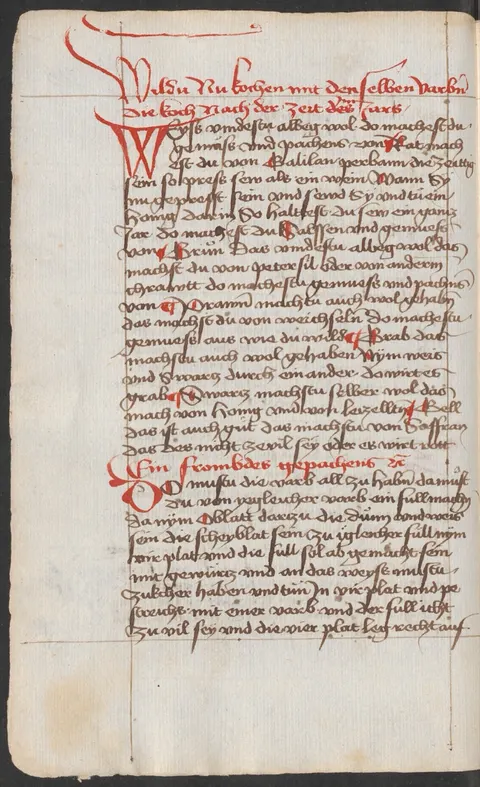 Wildu Nu kochen mit den selben varbn
die koch Nach der zeit des Jars
Weyss vindestu albeg wol do machest du
gemuess vnd pachens von Rat mach
est du von Galilan perbaum die zeittig
sein so press sew als ein wein Wann Sy
nu gepresst sein vnd sewd Sy vnd tu ein
Honig darin So haltest du sew ein gantz
Jar do machest du Salssen vnd gemuess
von Grün Das vindestu albeg wol das
machst du von petersil oder von anderm
chrawtt do machestu gemuess vnd pachns
von Prawn machtu auch wol gehabn
das machst du von weichseln do machestu
gemuess aus wie du wild Grab das
machstu auch wol gehaben Nym weis
vnd Swartz durch ein ander do wirt es
grab Swartz machstu selber wol das
mach von Honig vnd von letzelltn Gell
das ist auch gut das machstu von Saffran
das des nicht ze vil sey oder es wirt rott
Ein frombdes gepachens
Do mustu die varb all zu habn da must
du von ygleicher varb ein full machn
da nym Oblatt dartzu die dünn vnd weis
sein die scheyblat sein zu ygleicher full nym
vir plat vnd die full sol ab gemacht sein
mit gewürtz vnd an das weyss mustu
zukcher haben vnd tun In vir plat vnd pe
streichs mit einer varb vnd der full icht
zu vil sey vnd die vier plat leg recht auf